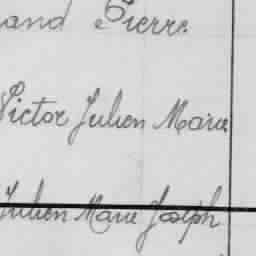 and Pierre
Victor Julien Marie
Julien Marie Joseph